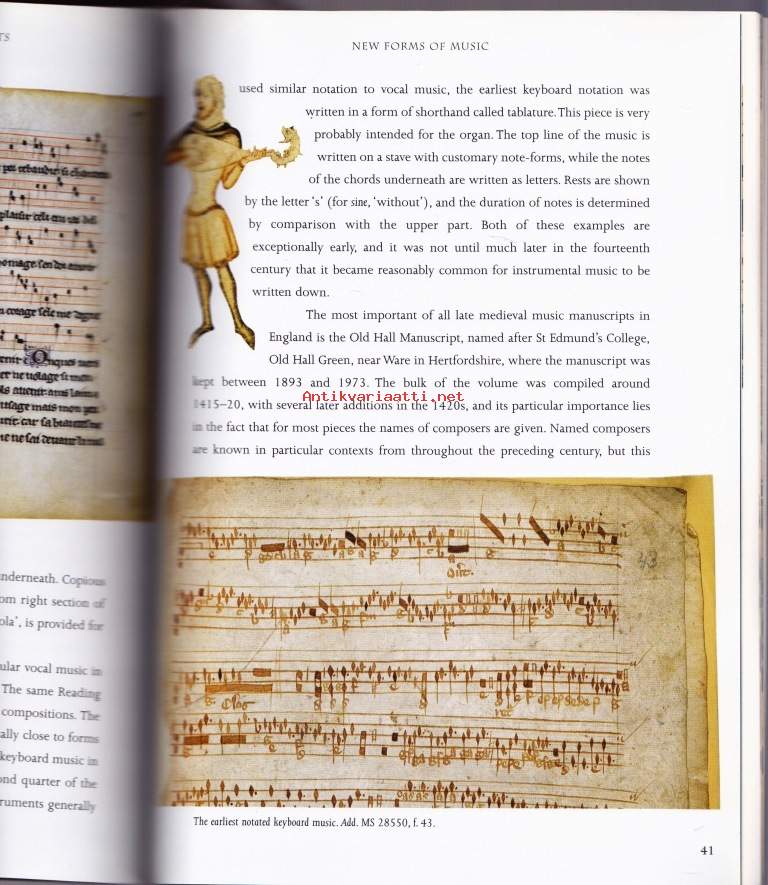 TS
nderneath. Copious
om right section of
ola', is provided for
ular vocal music in
The same Reading
compositions. The
ally close to forms
keyboard music in
ond quarter of the
ruments generally
NEW FORMS OF MUSIC
used similar notation to vocal music, the earliest keyboard notation was
written in a form of shorthand called tablature. This piece is very
probably intended for the organ. The top line of the music is
written on a stave with customary note-forms, while the notes
of the chords underneath are written as letters. Rests are shown
by the letter 's' (for sine, 'without'), and the duration of notes is determined
by comparison with the upper part. Both of these examples are
exceptionally early, and it was not until much later in the fourteenth
century that it became reasonably common for instrumental music to be
written down.
The most important of all late medieval music manuscripts in
England is the Old Hall Manuscript, named after St Edmund's College,
Old Hall Green, near Ware in Hertfordshire, where the manuscript was
kept between 1893 and 1973. The bulk of the volume was compiled around
1415–20, with several later additions in the 1420s, and its particular importance lies
in the fact that for most pieces the names of composers are given. Named composers
are known in particular contexts from throughout the preceding century, but this
Antikvariaatti.net
43
The earliest notated keyboard music. Add. MS 28550, f. 43.
41